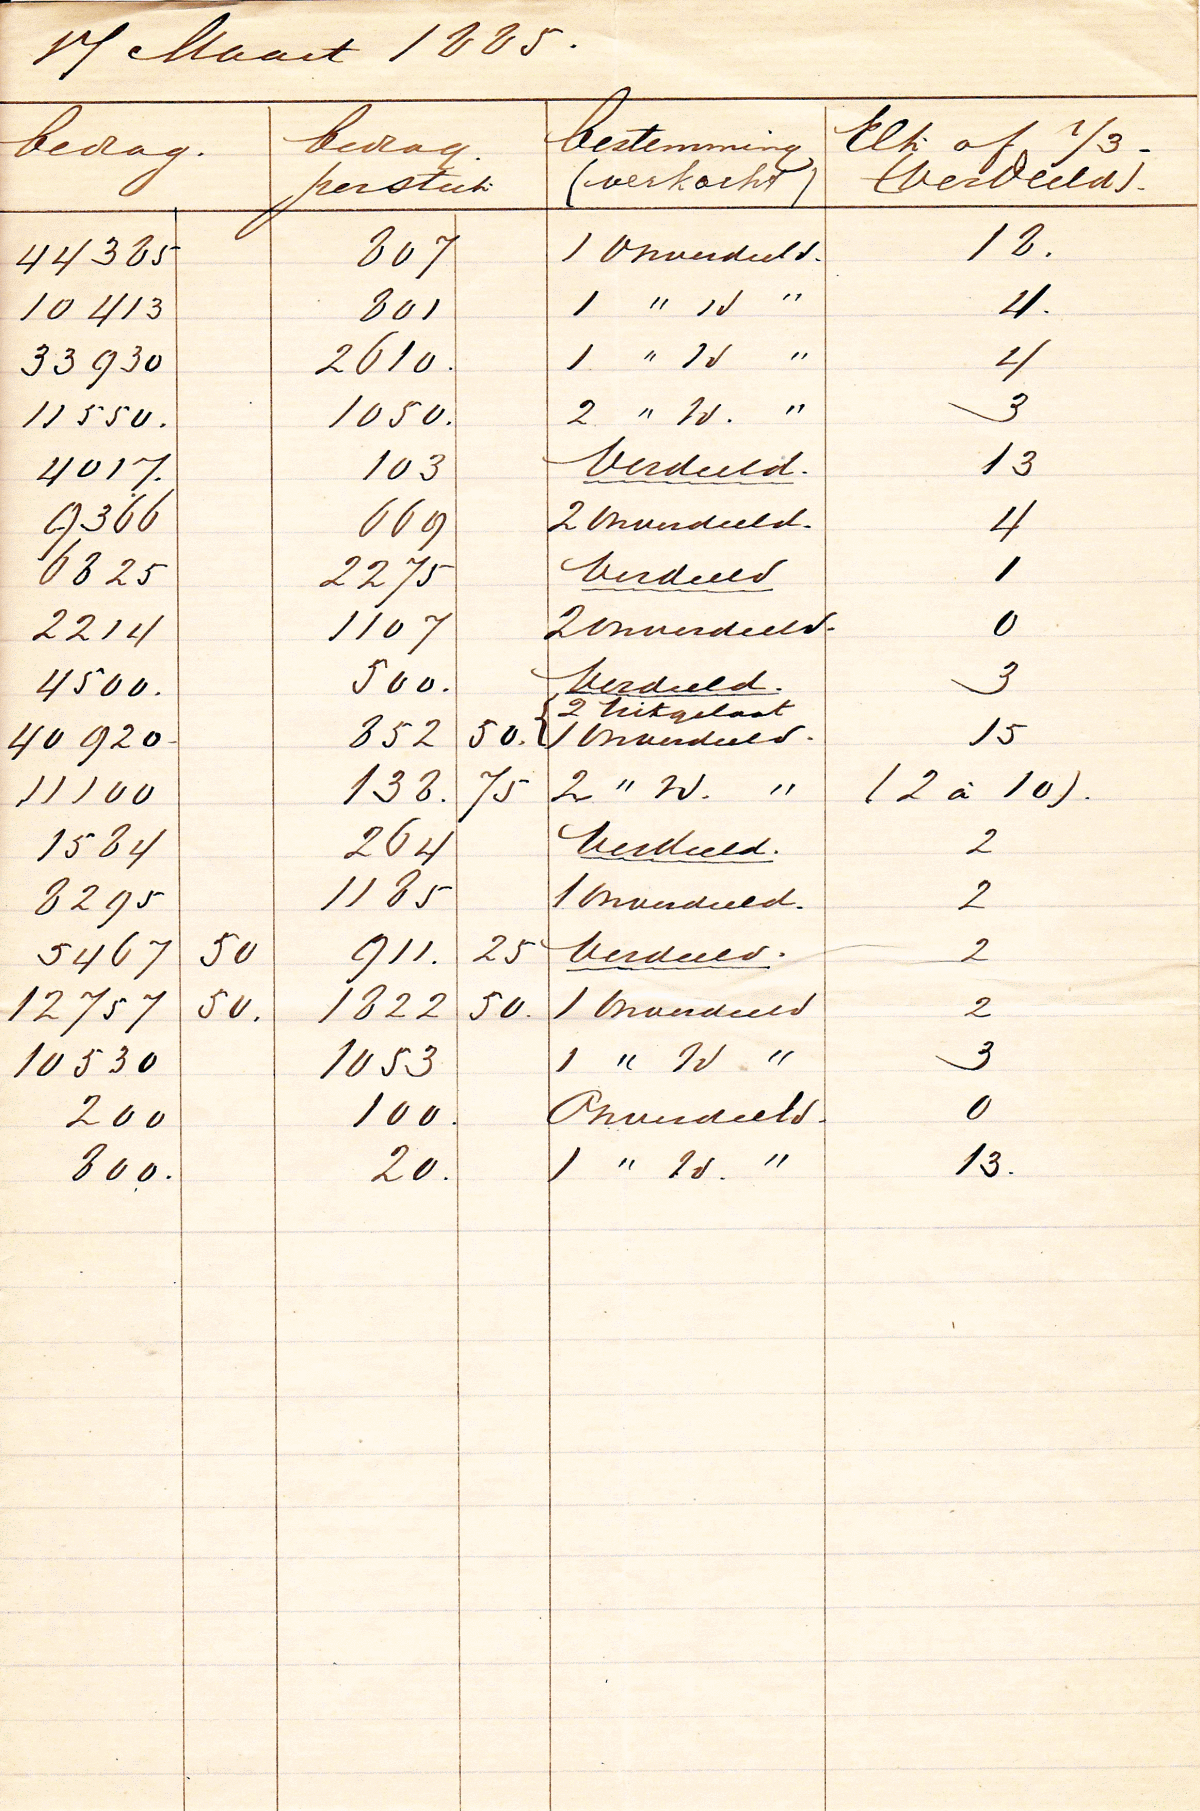 17 Maart 1885.
bedrag. bedrag per stuk bestemming (verkocht) Elk of 1/3 - (verdeeld).
44385 807 1 Onverdeeld. 18.
10413 801 1 " Id " 4.
33930 2610. 1 " Id " 4
11550. 1050. 2 " Id. " 3
4017. 103 Verdeeld. 13
9366 669 2 Onverdeeld. 4
6825 2275 Verdeeld 1
2214 1107 2 Onverdeeld. 0
4500. 500. Verdeeld. 3
2 Uitgeloot
40920 852 50. 1 Onverdeeld. 15
11100 138. 75 2 " Id. " (2 à 10).
1584 264 Verdeeld. 2
8295 1185 1 Onverdeeld. 2
5467 50 911. 25 Verdeeld. 2
12757 50. 1822 50. 1 Onverdeeld 2
10530 1053 1 " Id " 3
200 100. Onverdeeld. 0
800. 20. 1 " Id. " 13.